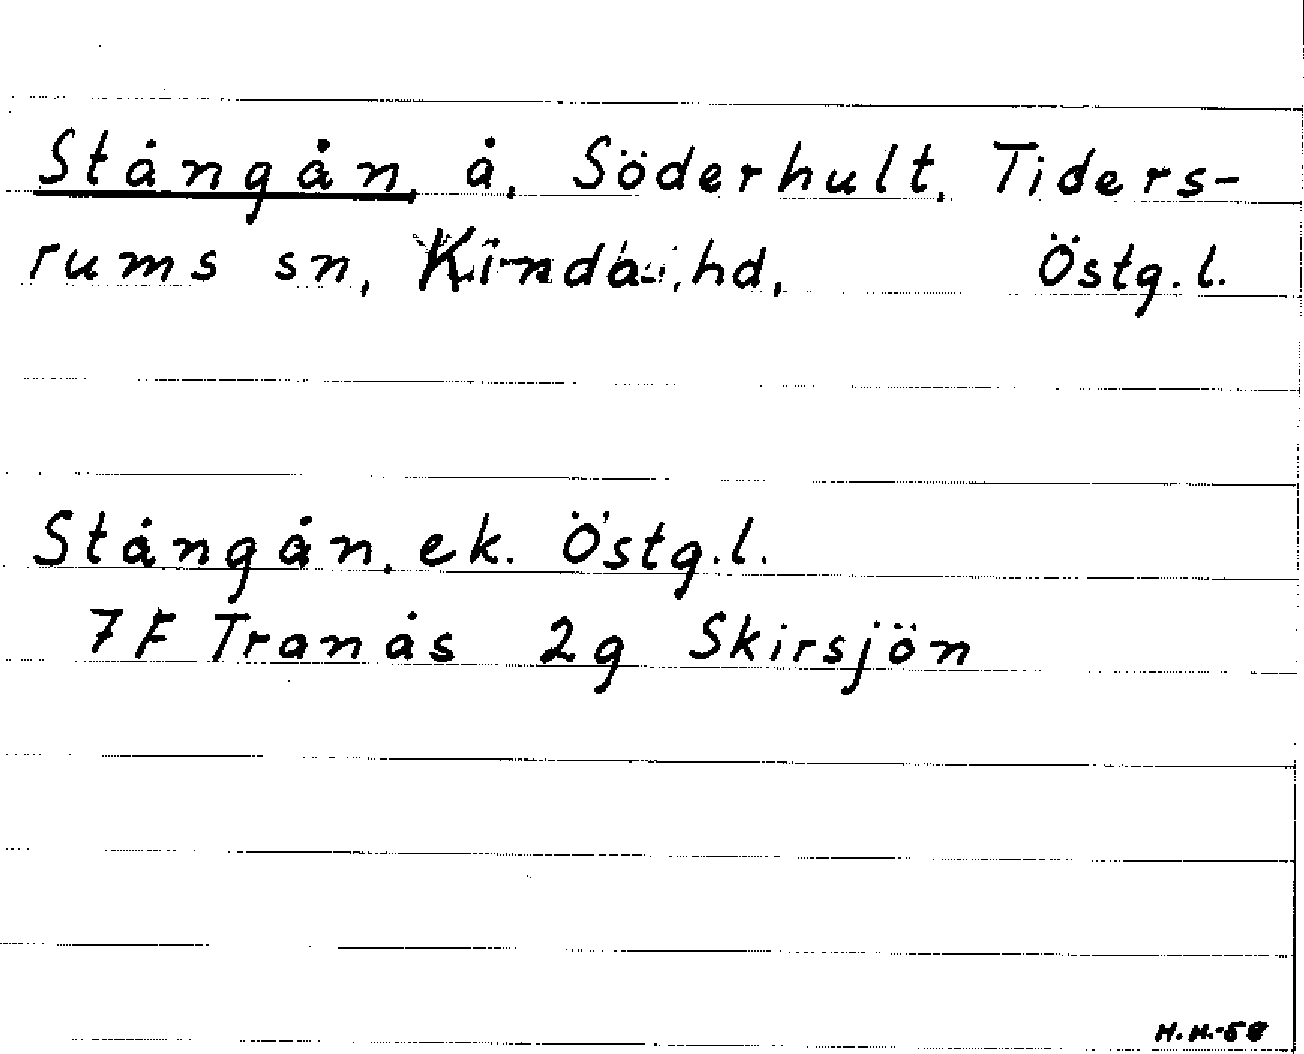 Stångån, å, Söderhult, Tiders-
rums sn, Kinda hd, Östg. l.
Stångån, ek. Östg. l.
7 F Tranås 2g Skirsjön
H.H.-58